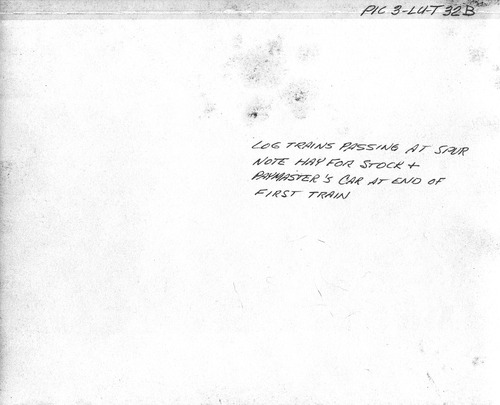 PIC 3-LU-T 32B
LOG TRAINS PASSING AT SPUR
NOTE HAY FOR STOCK +
PAYMASTER'S CAR AT END OF
FIRST TRAIN